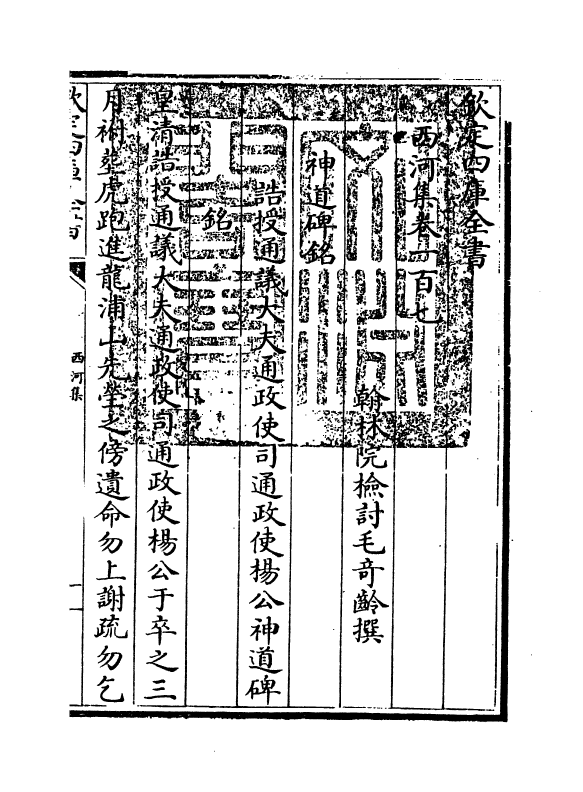 欽定四庫全書
西河集卷一百七
翰林院檢討毛奇齡撰
神道碑銘
誥授通議大夫通政使司通政使楊公神道碑
銘
皇清誥授通議大夫通政使司通政使楊公于卒之三
月祔塟虎跑進龍浦山先塋之傍遺命勿上謝疏勿乞
西河集
一